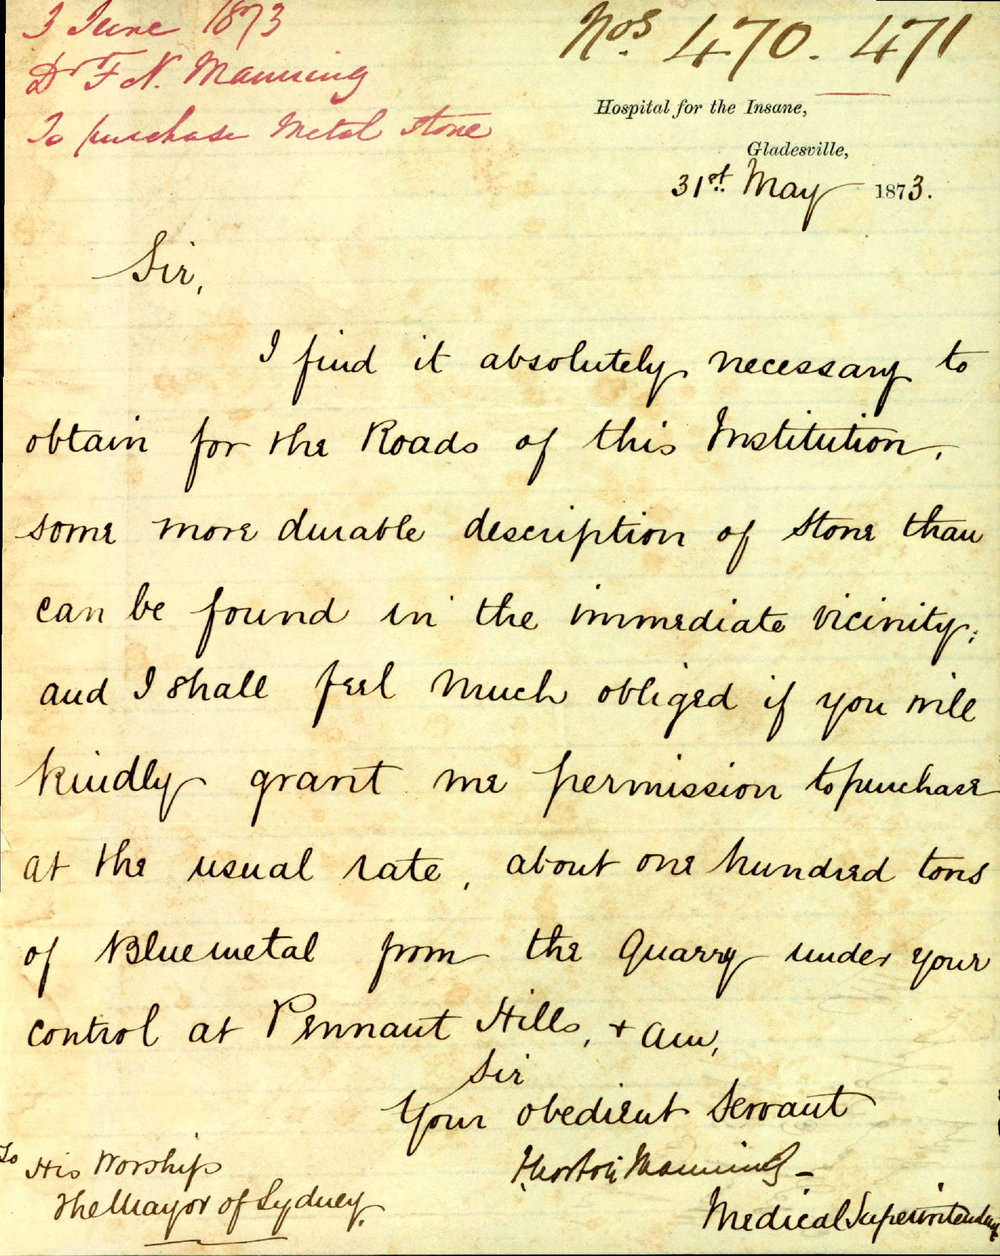 3 June 1873
Dr F N. Manning
To purchase Metal Stone
Nos. 470. 471
Hospital for the Insane,
Gladesville,
31st. May 1873.
Sir,
I find it absolutely necessary to
obtain for the Roads of this Institution,
some more durable description of stone than
can be found in the immediate vicinity;
and I shall feel much obliged if you will
kindly grant me permission to purchase
at the usual rate, about one hundred tons
of Blue metal from the Quarry under your
control at Pennant Hills, + am,
Sir
Your obedient Servant
F. Norton Manning
Medical Superintendent
To His Worship
The Mayor of Sydney.